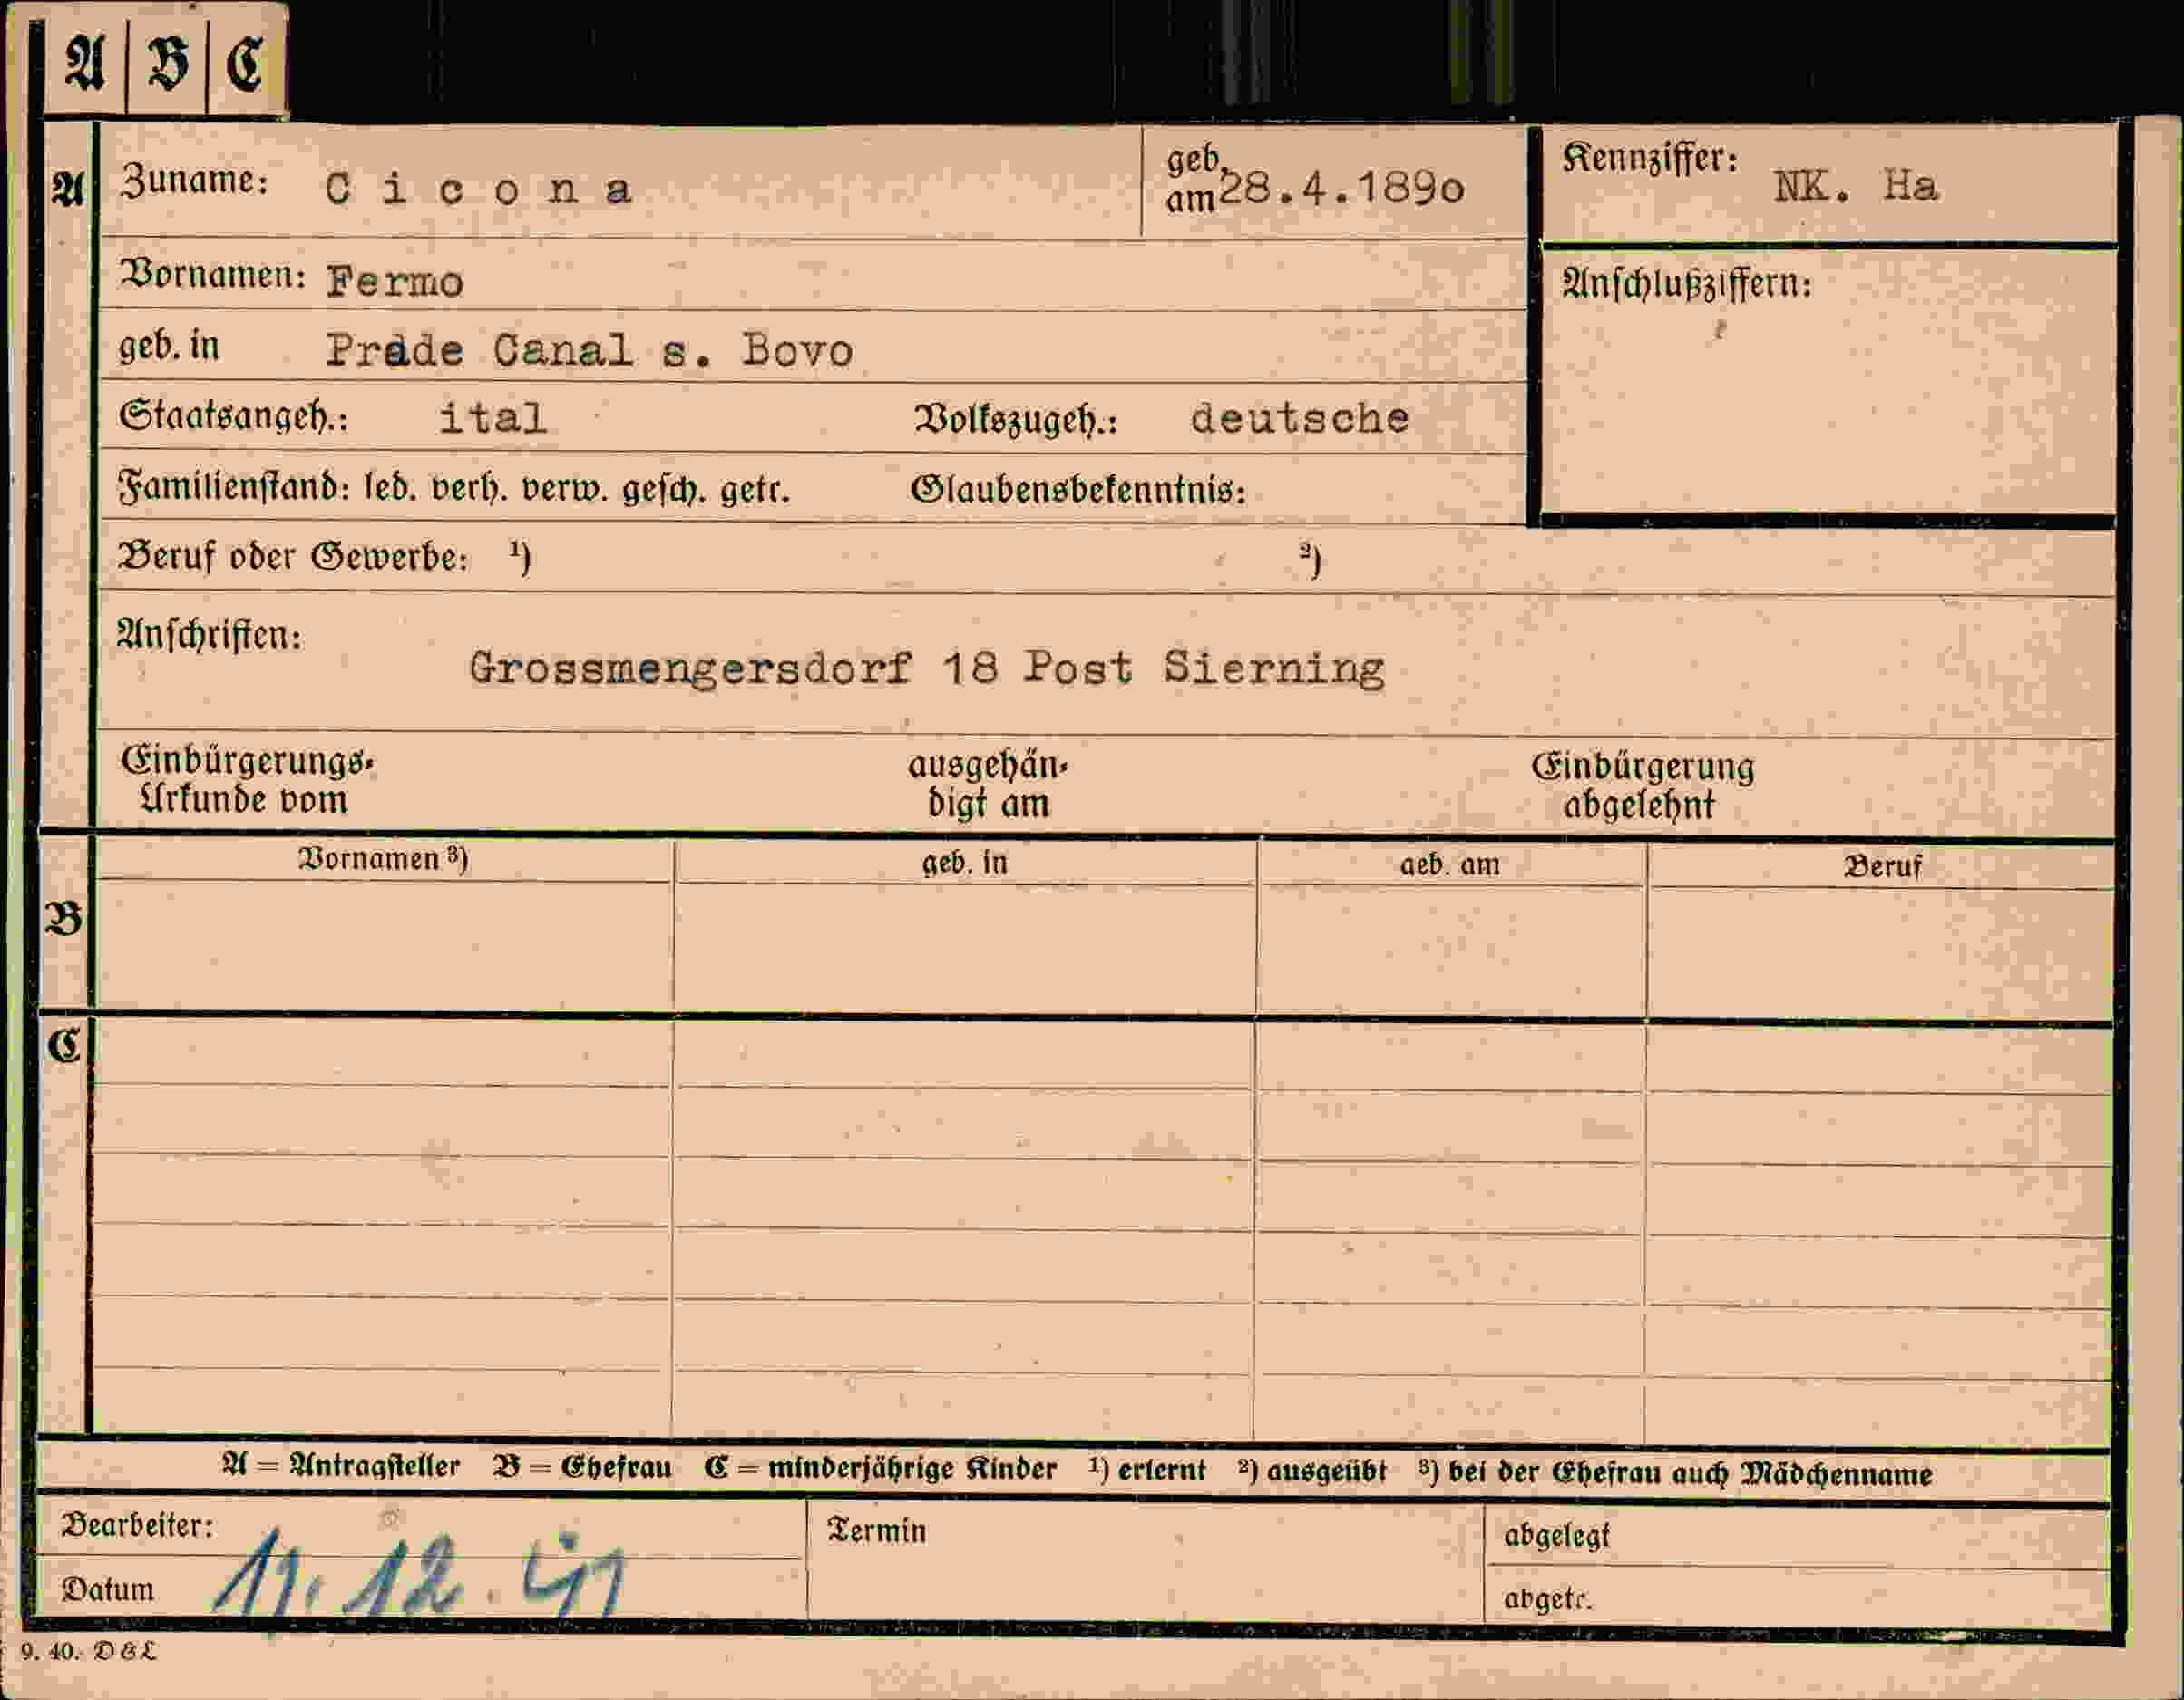 A B C
A Zuname: C i c o n a geb. am 28.4.189o Kennziffer: NK. Ha
Vornamen: Fermo Anschlußziffern:
geb. in Prade Canal s. Bovo
Staatsangeh.: ital Volkszugeh.: deutsche
Familienstand: led. verh. verw. gesch. getr. Glaubensbekenntnis:
Beruf oder Gewerbe: ¹) ²)
Anschriften:
Grossmengersdorf 18 Post Sierning
Einbürgerungs- ausgehän- Einbürgerung
Urkunde vom digt am abgelehnt
Vornamen ³) geb. in geb. am Beruf
B
C
A = Antragsteller B = Ehefrau C = minderjährige Kinder ¹) erlernt ²) ausgeübt ³) bei der Ehefrau auch Mädchenname
Bearbeiter: Termin abgelegt
Datum 11. 12. 41 abgetr.
9. 40. D&L